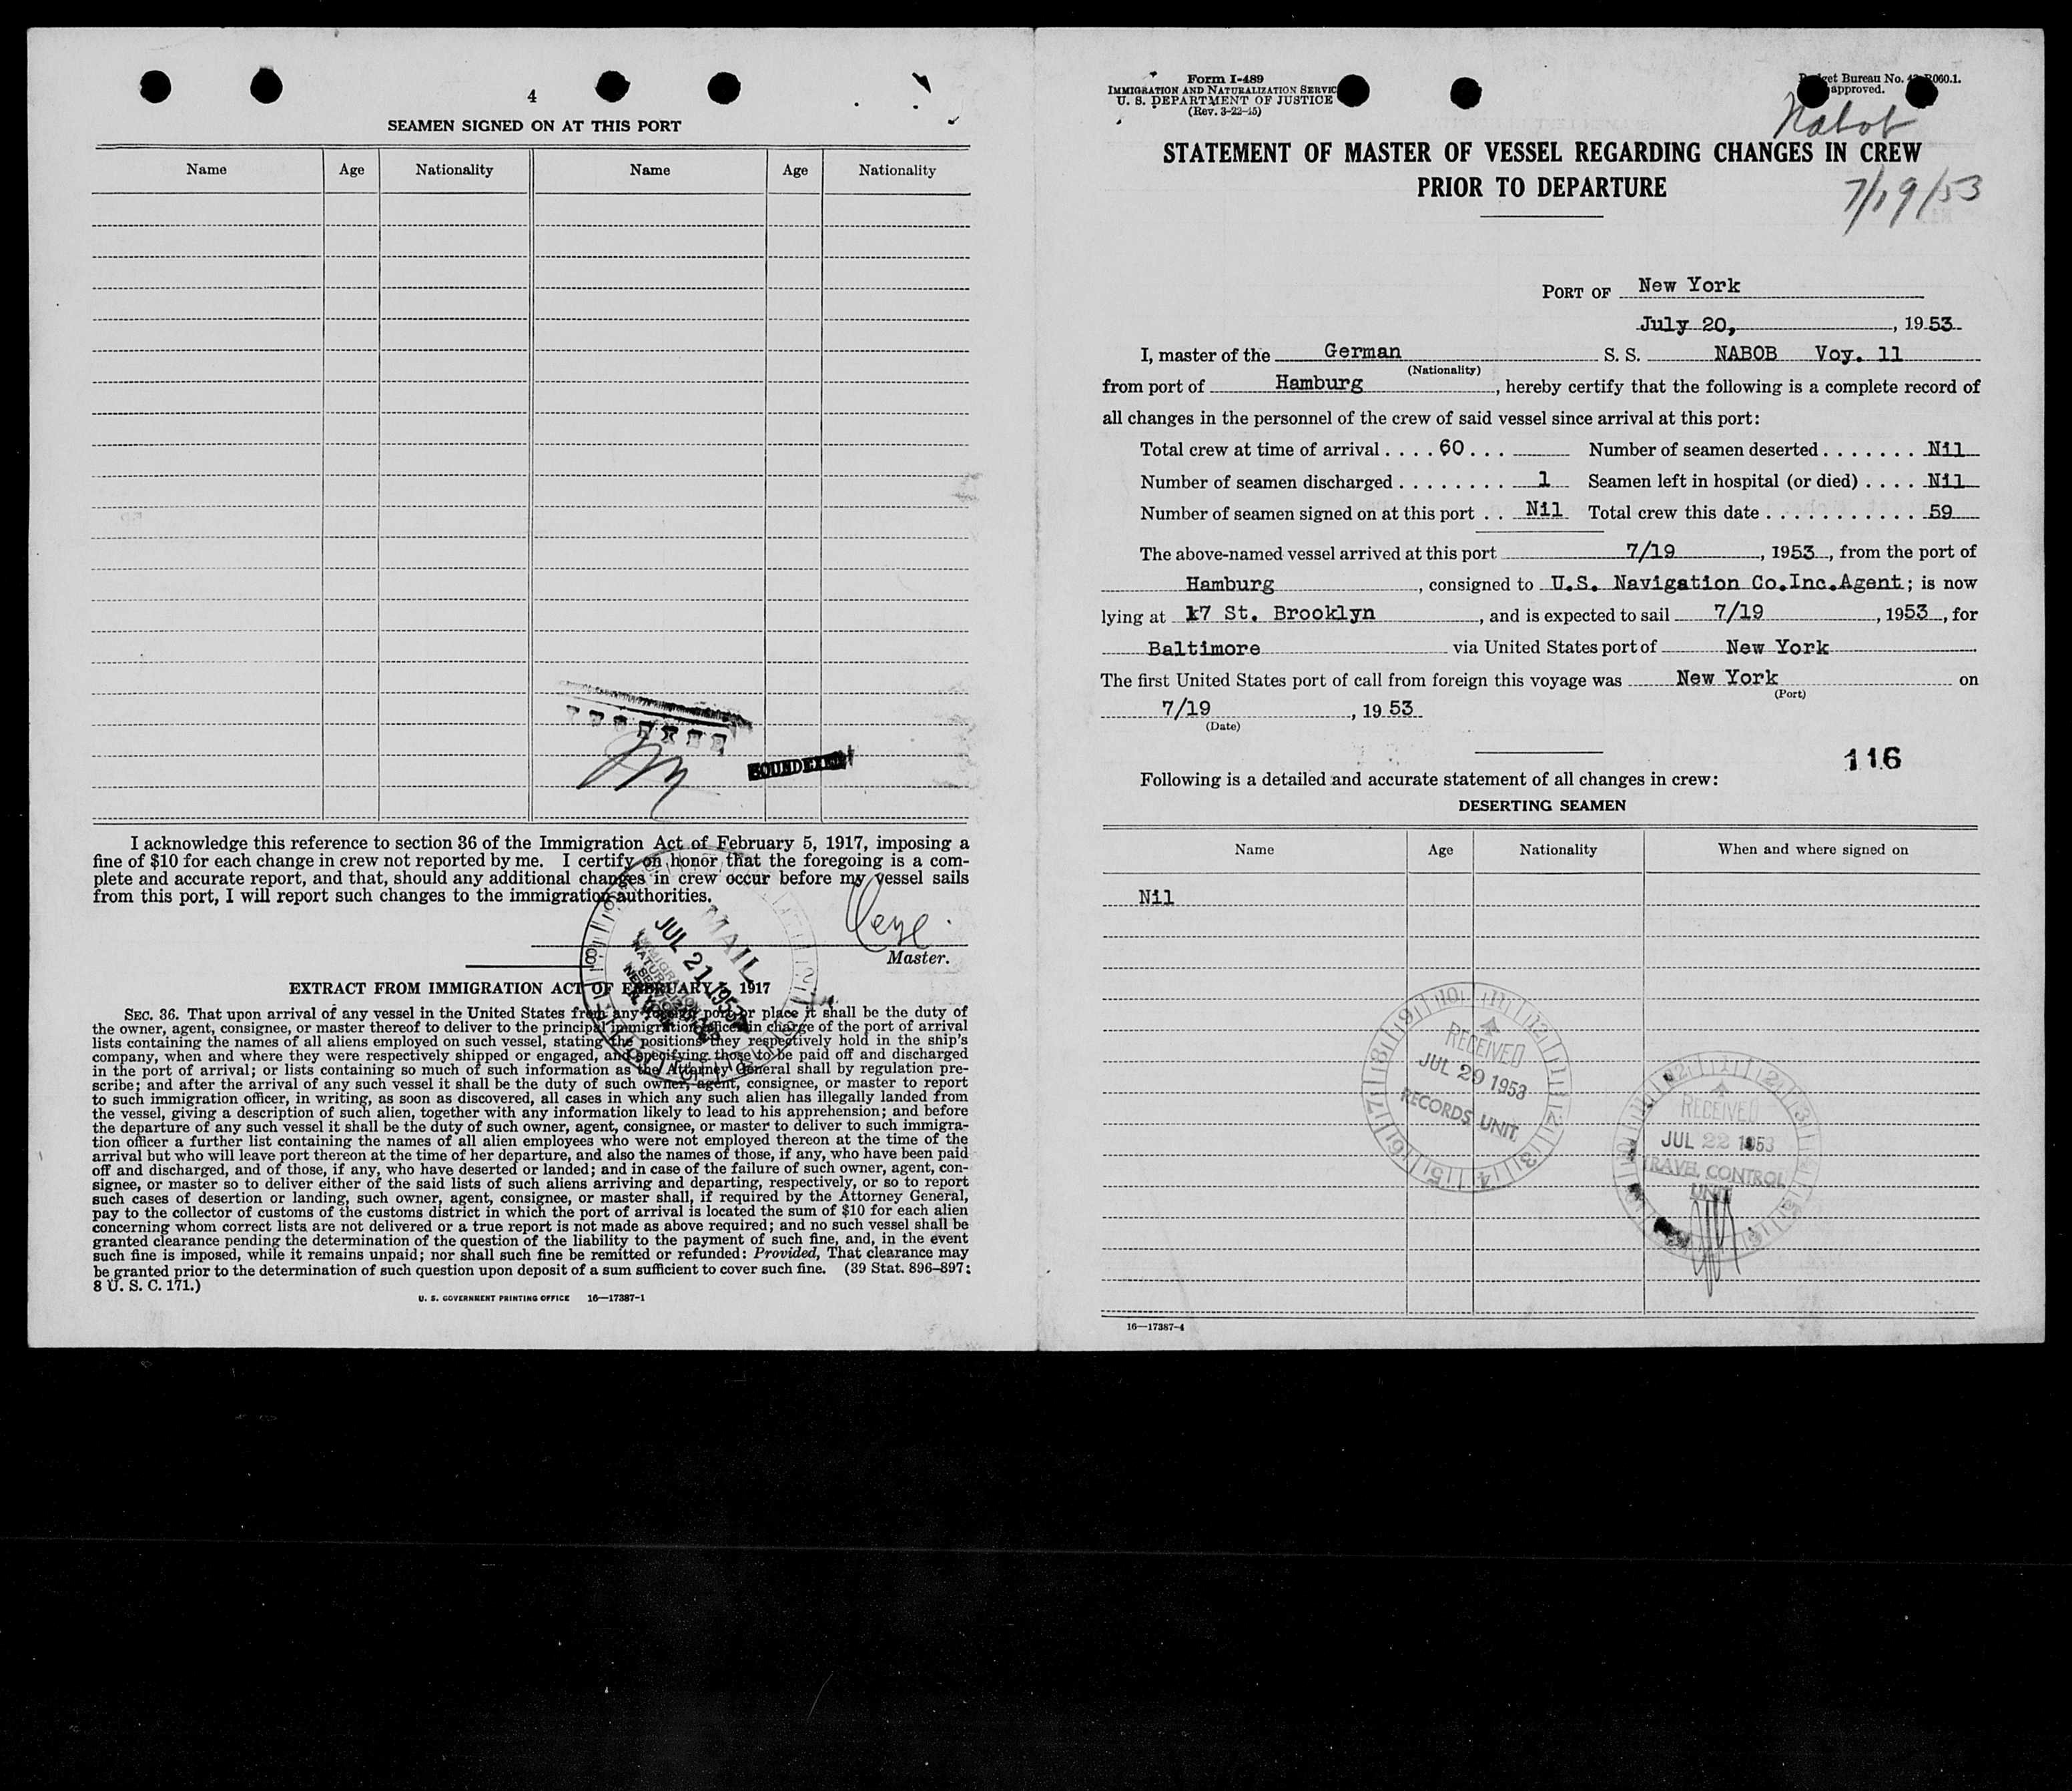 4
SEAMEN SIGNED ON AT THIS PORT
Name Age Nationality Name Age Nationality
SOUNDEXED
I acknowledge this reference to section 36 of the Immigration Act of February 5, 1917, imposing a
fine of $10 for each change in crew not reported by me. I certify on honor that the foregoing is a com-
plete and accurate report, and that, should any additional changes in crew occur before my vessel sails
from this port, I will report such changes to the immigration authorities.
MAIL
JUL 21 1953
Master.
EXTRACT FROM IMMIGRATION ACT OF FEBRUARY 5, 1917
SEC. 36. That upon arrival of any vessel in the United States from any foreign port or place it shall be the duty of
the owner, agent, consignee, or master thereof to deliver to the principal immigration officer in charge of the port of arrival
lists containing the names of all aliens employed on such vessel, stating the positions they respectively hold in the ship's
company, when and where they were respectively shipped or engaged, and specifying those to be paid off and discharged
in the port of arrival; or lists containing so much of such information as the Attorney General shall by regulation pre-
scribe; and after the arrival of any such vessel it shall be the duty of such owner, agent, consignee, or master to report
to such immigration officer, in writing, as soon as discovered, all cases in which any such alien has illegally landed from
the vessel, giving a description of such alien, together with any information likely to lead to his apprehension; and before
the departure of any such vessel it shall be the duty of such owner, agent, consignee, or master to deliver to such immigra-
tion officer a further list containing the names of all alien employees who were not employed thereon at the time of the
arrival but who will leave port thereon at the time of her departure, and also the names of those, if any, who have been paid
off and discharged, and of those, if any, who have deserted or landed; and in case of the failure of such owner, agent, con-
signee, or master so to deliver either of the said lists of such aliens arriving and departing, respectively, or so to report
such cases of desertion or landing, such owner, agent, consignee, or master shall, if required by the Attorney General,
pay to the collector of customs of the customs district in which the port of arrival is located the sum of $10 for each alien
concerning whom correct lists are not delivered or a true report is not made as above required; and no such vessel shall be
granted clearance pending the determination of the question of the liability to the payment of such fine, and, in the event
such fine is imposed, while it remains unpaid; nor shall such fine be remitted or refunded: Provided, That clearance may
be granted prior to the determination of such question upon deposit of a sum sufficient to cover such fine. (39 Stat. 896–897;
8 U. S. C. 171.)
U. S. GOVERNMENT PRINTING OFFICE 16—17387-1
Form I-489
IMMIGRATION AND NATURALIZATION SERVICE
U. S. DEPARTMENT OF JUSTICE
(Rev. 3-22-45)
Budget Bureau No. 43-R060.1.
approved.
Nabob
STATEMENT OF MASTER OF VESSEL REGARDING CHANGES IN CREW
PRIOR TO DEPARTURE
7/19/53
PORT OF New York
July 20, , 1953
I, master of the German S. S. NABOB Voy. 11
(Nationality)
from port of Hamburg , hereby certify that the following is a complete record of
all changes in the personnel of the crew of said vessel since arrival at this port:
Total crew at time of arrival . . . . 60 . . . Number of seamen deserted . . . . . . . Nil
Number of seamen discharged . . . . . . . . . 1 Seamen left in hospital (or died) . . . . Nil
Number of seamen signed on at this port . . Nil Total crew this date . . . . . . . . . . . . 59
The above-named vessel arrived at this port 7/19 , 1953 , from the port of
Hamburg , consigned to U.S. Navigation Co.Inc.Agent ; is now
lying at 17 St. Brooklyn , and is expected to sail 7/19 , 1953 , for
Baltimore via United States port of New York
The first United States port of call from foreign this voyage was New York on
(Port)
7/19 , 19 53
(Date)
116
Following is a detailed and accurate statement of all changes in crew:
DESERTING SEAMEN
Name Age Nationality When and where signed on
Nil
RECEIVED
JUL 29 1953
RECORDS UNIT
RECEIVED
JUL 22 1953
TRAVEL CONTROL
UNIT
16—17387-4